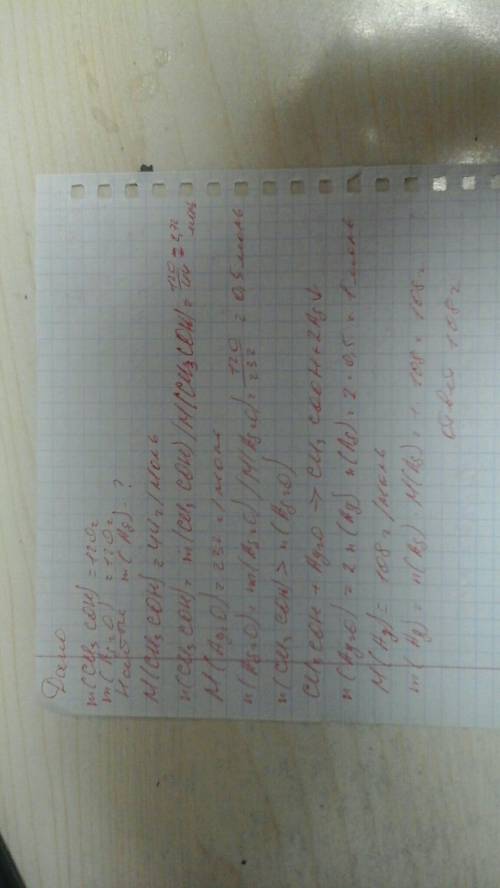 Дано
m(CH3 COH) = 120г
m(Ag2O) = 120г
Найти m(Ag)-?
M(CH3 COH) = 44г/моль
n(CH3 COH) = m(CH3 COH)/M(CH3 COH) = 120/44 = 2,72 моль
M(Ag2O) = 232г/моль
n(Ag2O) = m(Ag2O)/M(Ag2O) = 120/232 = 0,5 моль
n(CH3 COH > n(Ag2O)
CH3 COH + Ag2O → CH3 COOH + 2Ag↓
n(Ag2O) = 2 n(Ag) n(Ag) = 2·0,5 = 1 моль
M(Ag) = 108г/моль
m(Ag) = n(Ag) · M(Ag) = 1·108 = 108г
ответ 108г